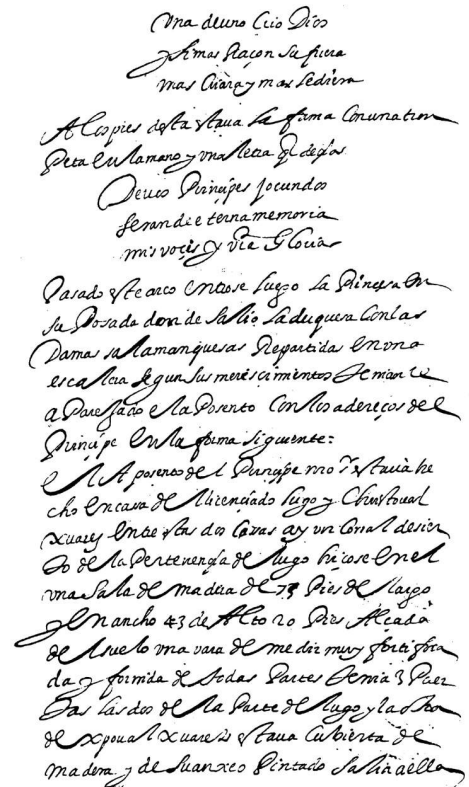 una de uno crio Dios
y si mas Raçon supiera
mas criara y mas le diera
A los pies desta estaua la fama con una trom
peta en la mano y una letra q̃ deçia
De uos Prinçipes jocundos
seran de eterna memoria
mis voçes y vr̃a Gloria
Pasado este arco entrose luego la Prinçesa en
su Posada donde salio la duquesa con las
Damas salamanquesas Repartidas en una
escalera segun sus meresçimientos
a Parejado el aPosento con los adereços del
Prinçipe en la forma siguiente:
el APosento del Prinçipe nr̃o sr estaua he
cho en casa del liçenciado lugo y Christoual
xuarez entre estas dos casas ay un corral
de la Pertenençia de lugo hiçose en el
una sala de madera de 75 Pies de largo
y en ancho 43 de Alto 20 Pies Alçada
del suelo una vara de medir muy fortifica
da y fornida de todas Partes tenia 3 Puer
tas las dos de la Parte de lugo y la otra
de xpoual xuarez estaua cubierta de
madera y de Pintado